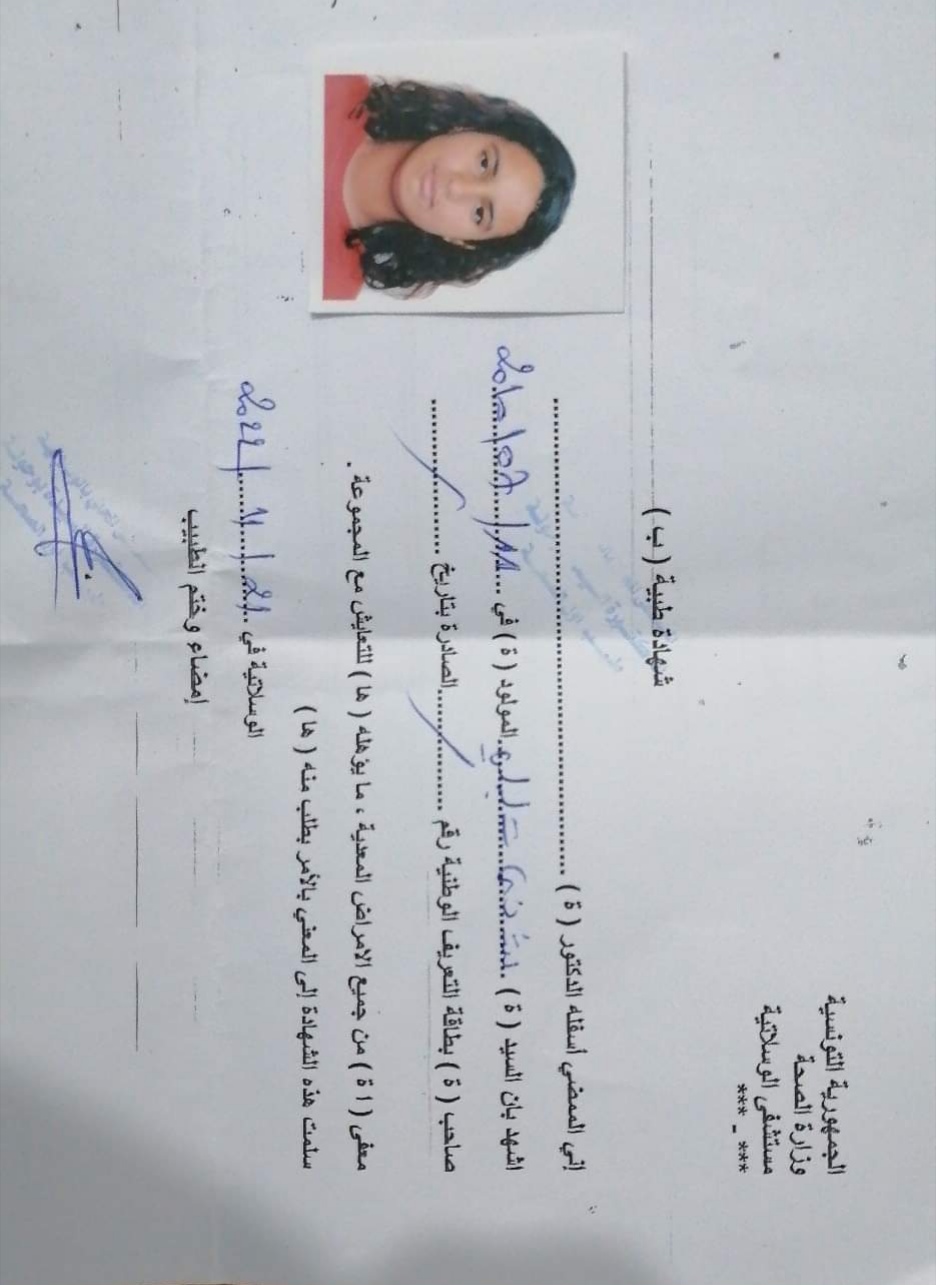 الجمهورية التونسية
وزارة الصحة
مستشفى الوسلاتية
*** - ***
شهادة طبية ( ب )
إني الممضي أسفله الدكتور ( ة ) ........................................
اشهد بان السيد ( ة ) ........ المولود ( ة ) في ........
صاحب ( ة ) بطاقة التعريف الوطنية رقم ................ الصادرة بتاريخ ................
معفى ( ا ة ) من جميع الامراض المعدية ، ما يؤهله ( ها ) للتعايش مع المجموعة .
سلمت هذه الشهادة إلى المعني بالأمر بطلب منه ( ها )
الوسلاتية في 21 / 11 / 2022
إمضاء وختم الطبيب